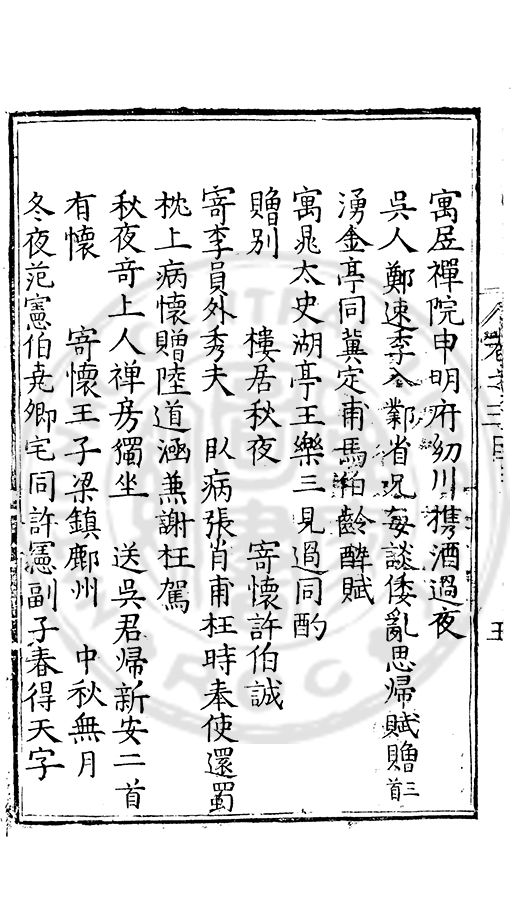 寓居禪院申明府幼川携酒過夜
吳人鄭速季入鄴省兄每談倭亂思歸賦贈三首
湧金亭同冀定甫馬伯齡醉賦
寓晁太史湖亭王樂三見過同酌
贈別　樓居秋夜　寄懷許伯誠
寄李員外秀夫　臥病張肖甫枉時奉使還蜀
枕上病懷贈陸道涵兼謝枉駕
秋夜奇上人禅房獨坐　送吳君帰新安二首
有懷　寄懷王子梁鎮鄜州　中秋無月
冬夜范憲伯堯卿宅同許憲副子春得天字